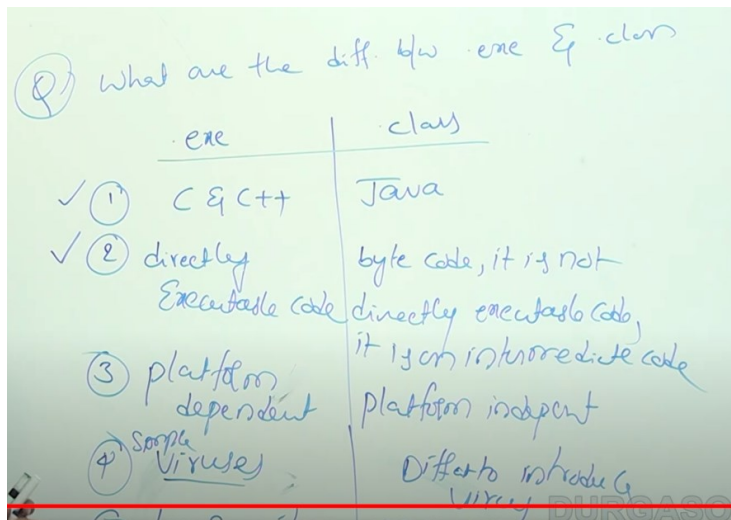 Q) What are the diff. b/w .exe & .class
.exe .class
① C & C++ Java
② directly byte code, it is not
Executable code directly executable code,
it is an intermediate code
③ platform
dependent platform indepent
④ Viruses Differto introduce
virus
DURGASO